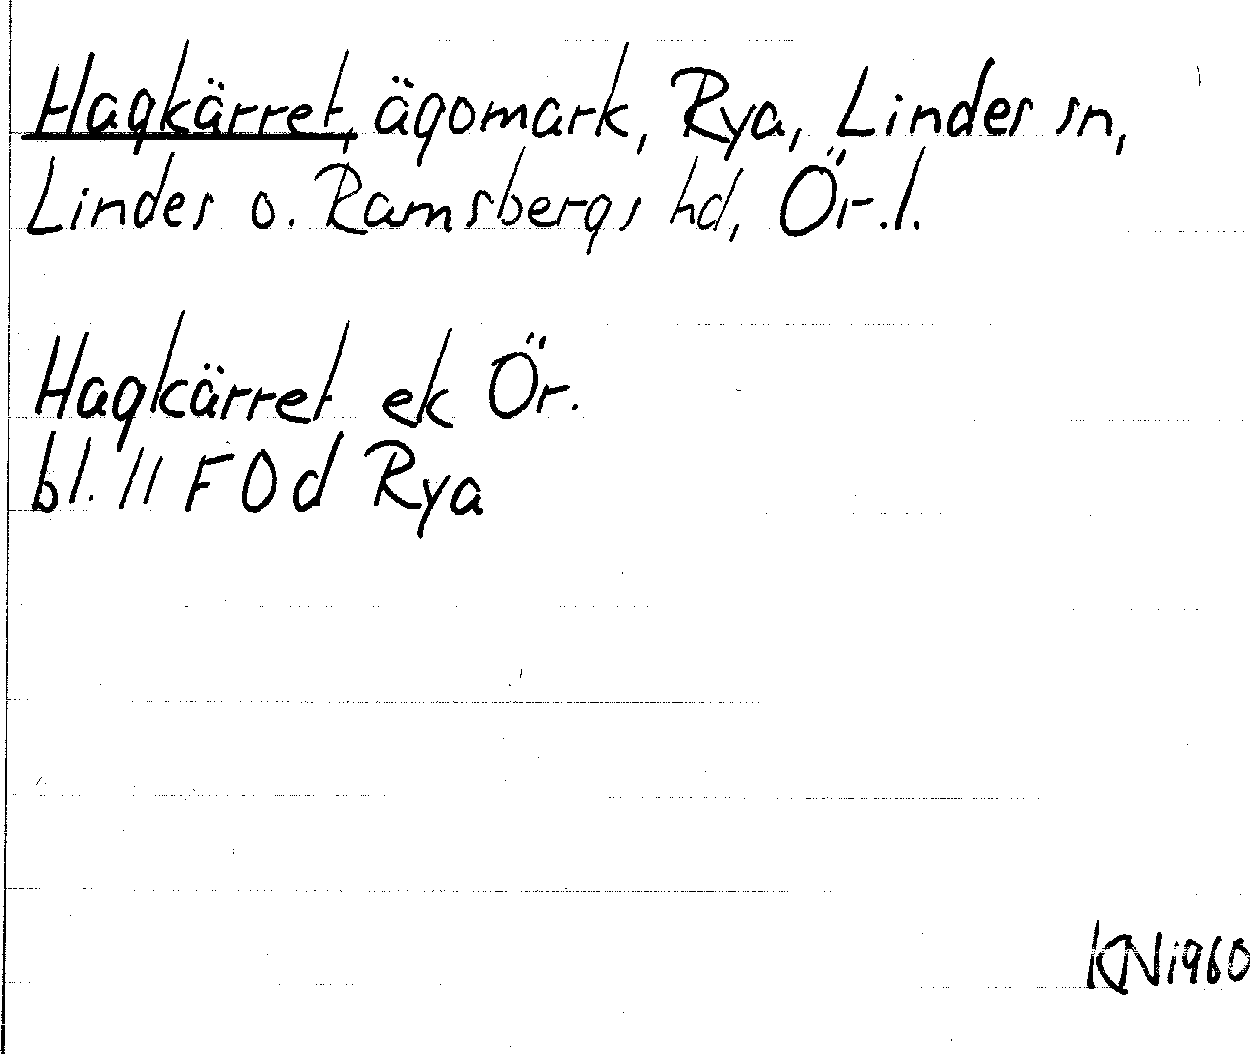 Hagkärret, ägomark, Rya, Lindes sn,
Lindes o. Ramsbergs hd, Ör.l.
Hagkärret ek Ör.
bl. 11 F 0 d Rya
KN 1960